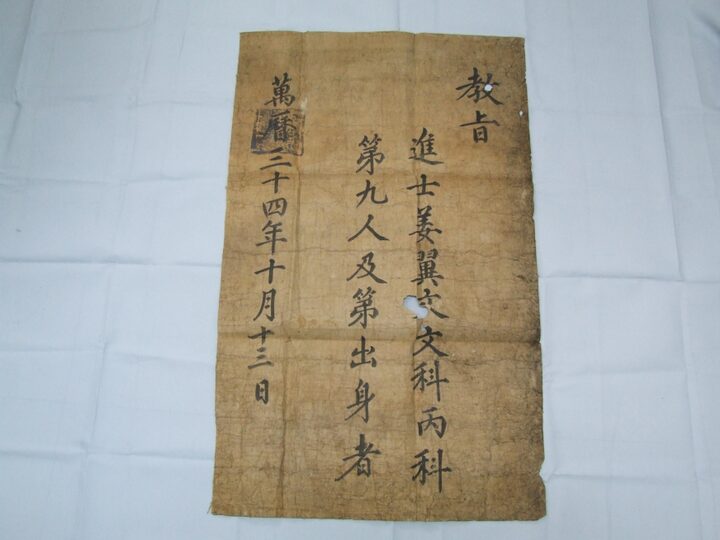 教旨
進士姜翼文文科丙科
第九人及第出身者
萬曆三十四年十月十三日